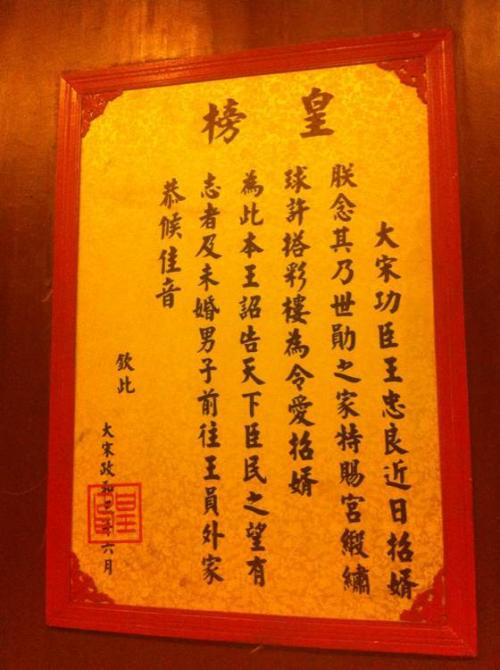 皇榜
大宋功臣王忠良近日招婿
朕念其乃世勛之家特賜宮緞繡
球許搭彩樓為令愛招婿
為此本王詔告天下臣民之望有
志者及未婚男子前往王員外家
恭候佳音
欽此
大宋政和三年六月